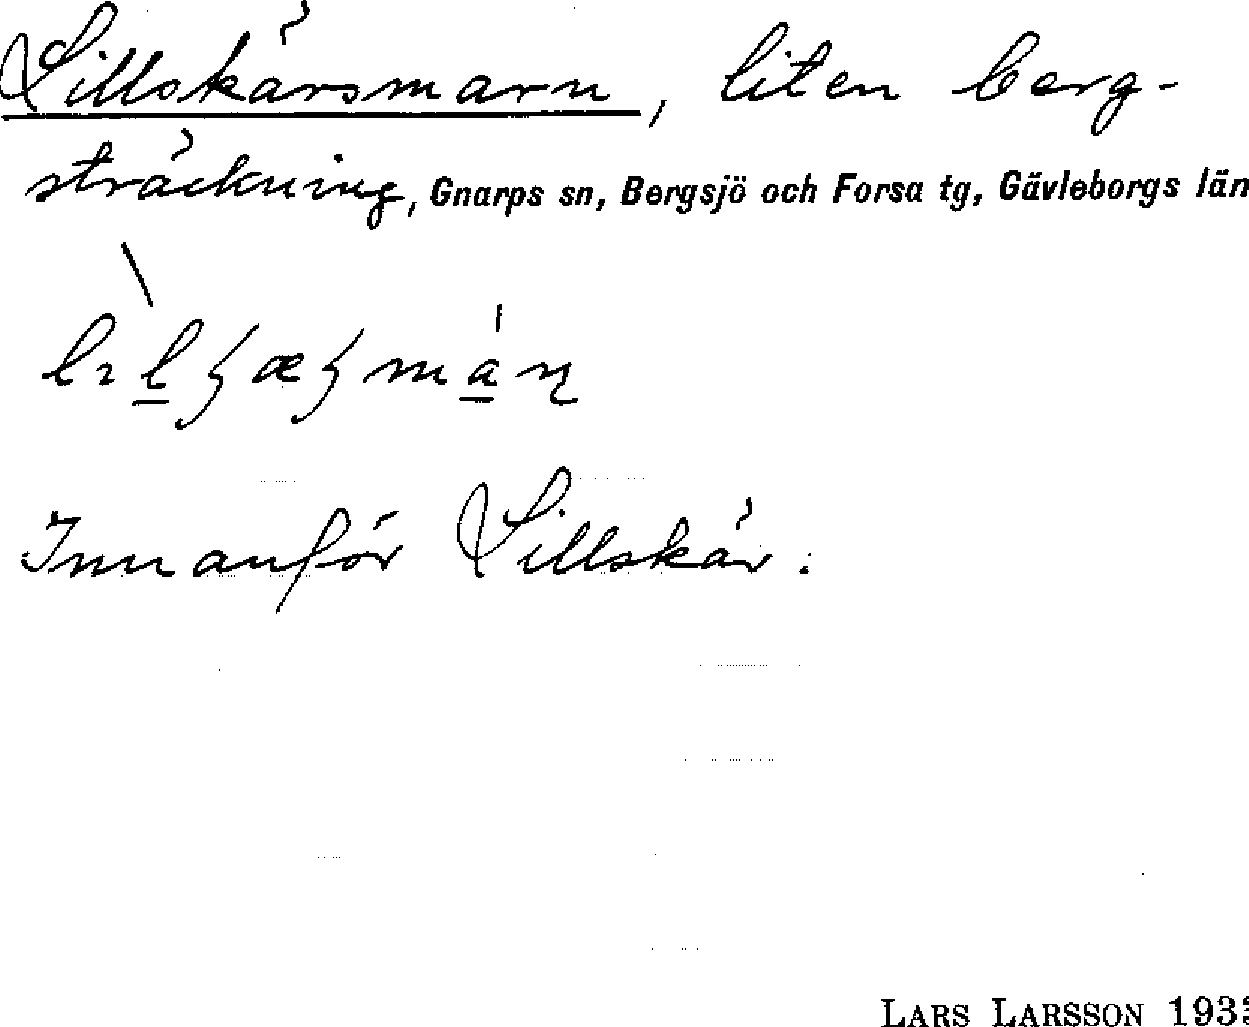 Lillskärsmarn, liten berg-
sträckning, Gnarps sn, Bergsjö och Forsa tg, Gävleborgs län
Innanför Lillskär.
LARS LARSSON